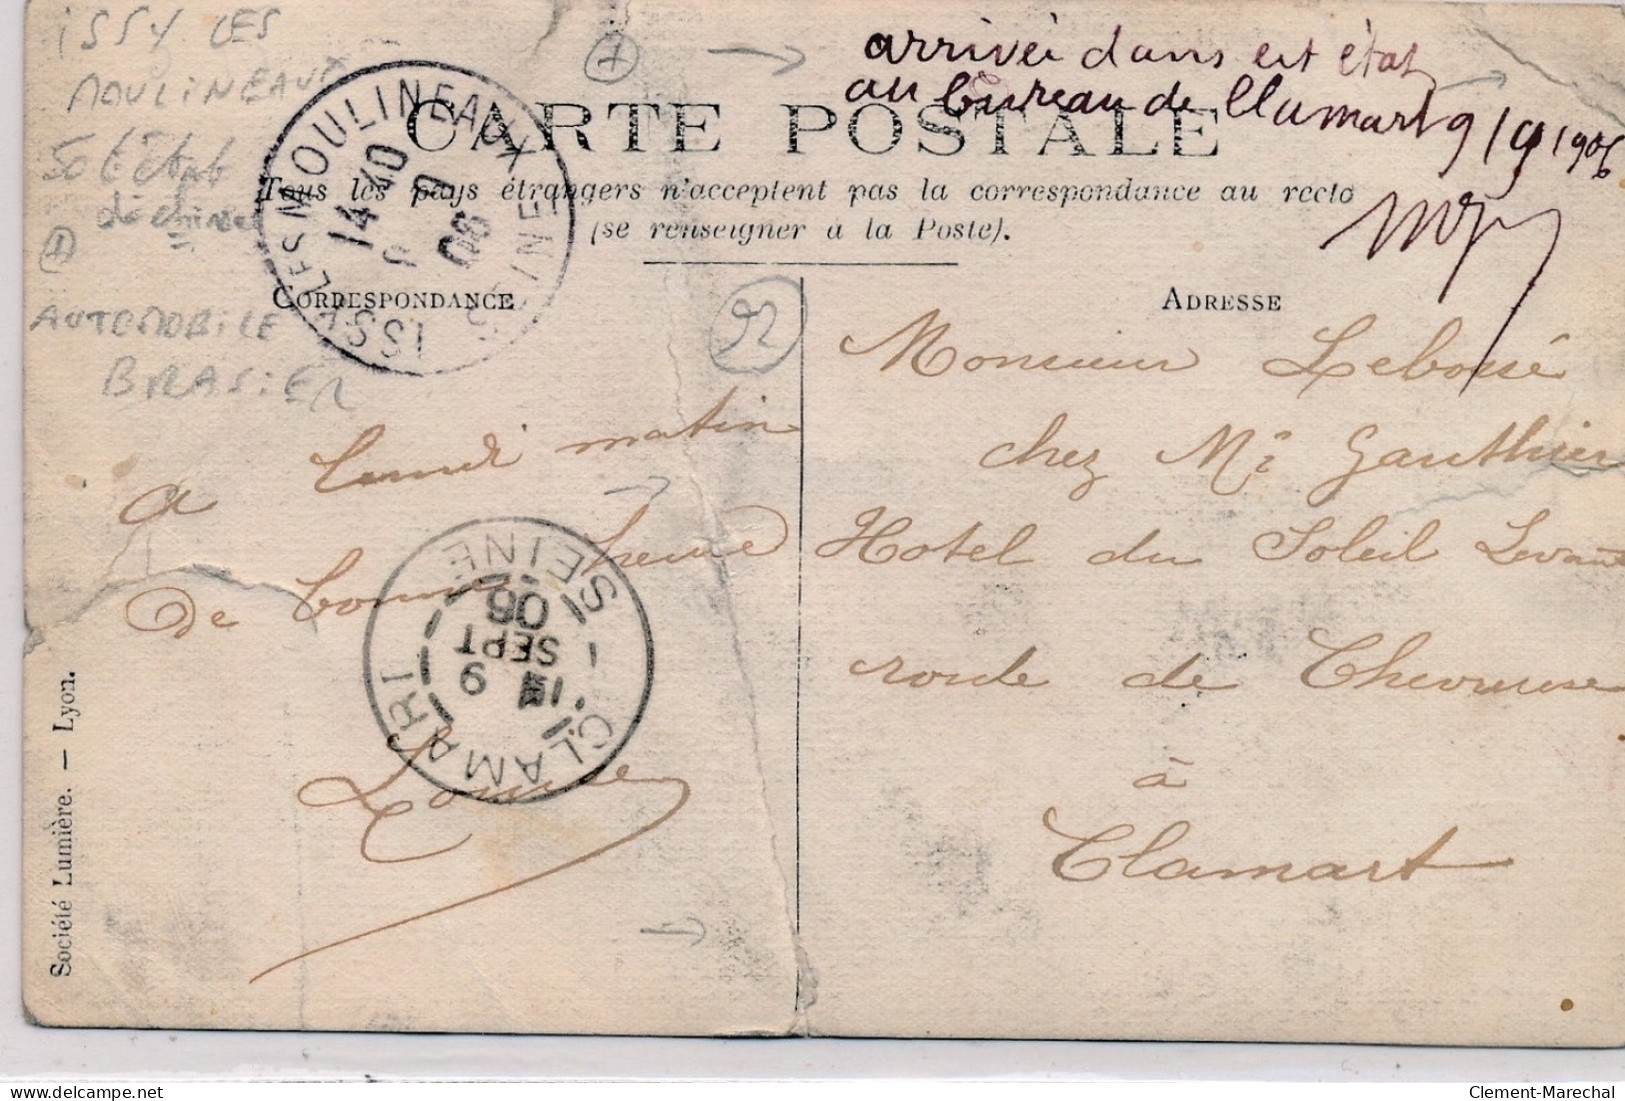 ISSY LES
MOULINEAUX
arrivée dans cet état
au bureau de Clamart 9/9/1906
CARTE POSTALE
Tous les pays étrangers n'acceptent pas la correspondance au recto
(se renseigner à la Poste).
ISSY-LES-MOULINEAUX
SEINE
14 40
9
06
AUTOMOBILE
BRASIER
CORRESPONDANCE
ADRESSE
22
a lundi matin
de bonne heure
Louise
CLAMART
SEINE
9
SEPT
06
Monsieur Leboisé
chez Mr Gauthier
Hotel du Soleil Levant
route de Chevreuse
à
Clamart
Société Lumière. — Lyon.
delcampe.net
Clement-Marechal